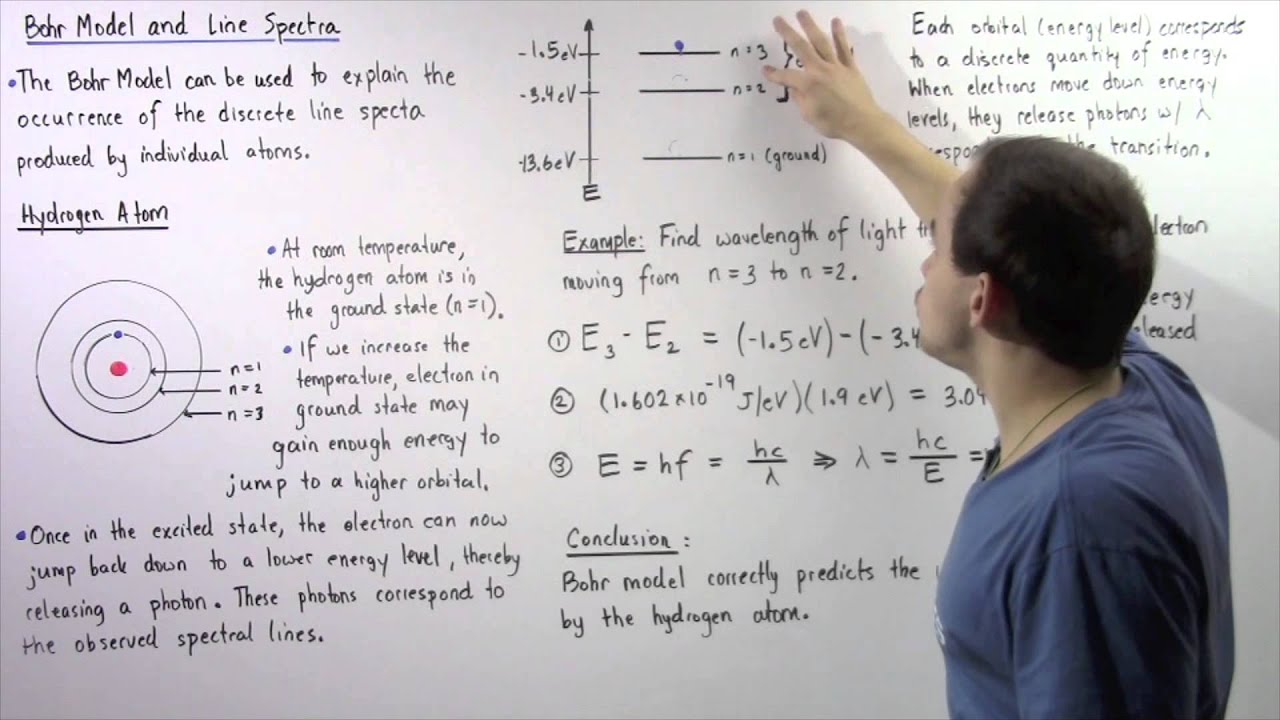 Bohr Model and Line Spectra
• The Bohr Model can be used to explain the
occurrence of the discrete line specta
produced by individual atoms.
Hydrogen Atom
• At room temperature,
the hydrogen atom is in
the ground state (n=1).
• If we increase the
temperature, electron in
ground state may
gain enough energy to
jump to a higher orbital.
n=1
n=2
n=3
• Once in the excited state, the electron can now
jump back down to a lower energy level, thereby
releasing a photon. These photons correspond to
the observed spectral lines.
-1.5eV
n=3
-3.4eV
n=2
-13.6eV
n=1 (ground)
E
Each orbital (energy level) corresponds
to a discrete quantity of energy.
When electrons move down energy
levels, they release photons w/ λ
the transition.
Example: Find wavelength of light
moving from n=3 to n=2.
① E₃ - E₂ = (-1.5eV)-(-3.4
② (1.602×10⁻¹⁹ J/eV)(1.9 eV) = 3.04
③ E = hf = hc/λ ⇒ λ = hc/E =
Conclusion:
Bohr model correctly predicts the
by the hydrogen atom.